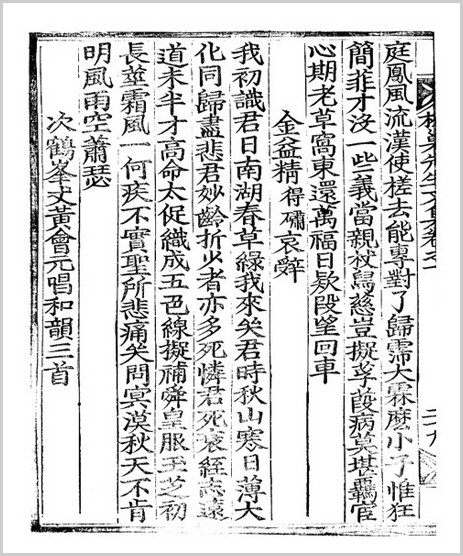 庭鳳風流漢使槎去能專對了歸霈大霖麽小子惟狂
簡菲才没一些義當親杖舄慈豈擬孚葭病莫堪羈宦
心期老草窩東還萬福日欵段望回車
金益精得礵哀辭
我初識君日南湖春草綠我來失君時秋山寒日薄大
化同歸盡悲君妙齡折少者亦多死憐君死衰絰志遠
道未半才高命太促織成五色線擬補舜皇服玉芝初
長莖霜風一何疾不實聖所悲痛矣問冥漠秋天不肯
明風雨空蕭瑟
次鶴峯丈黃會元唱和韻三首